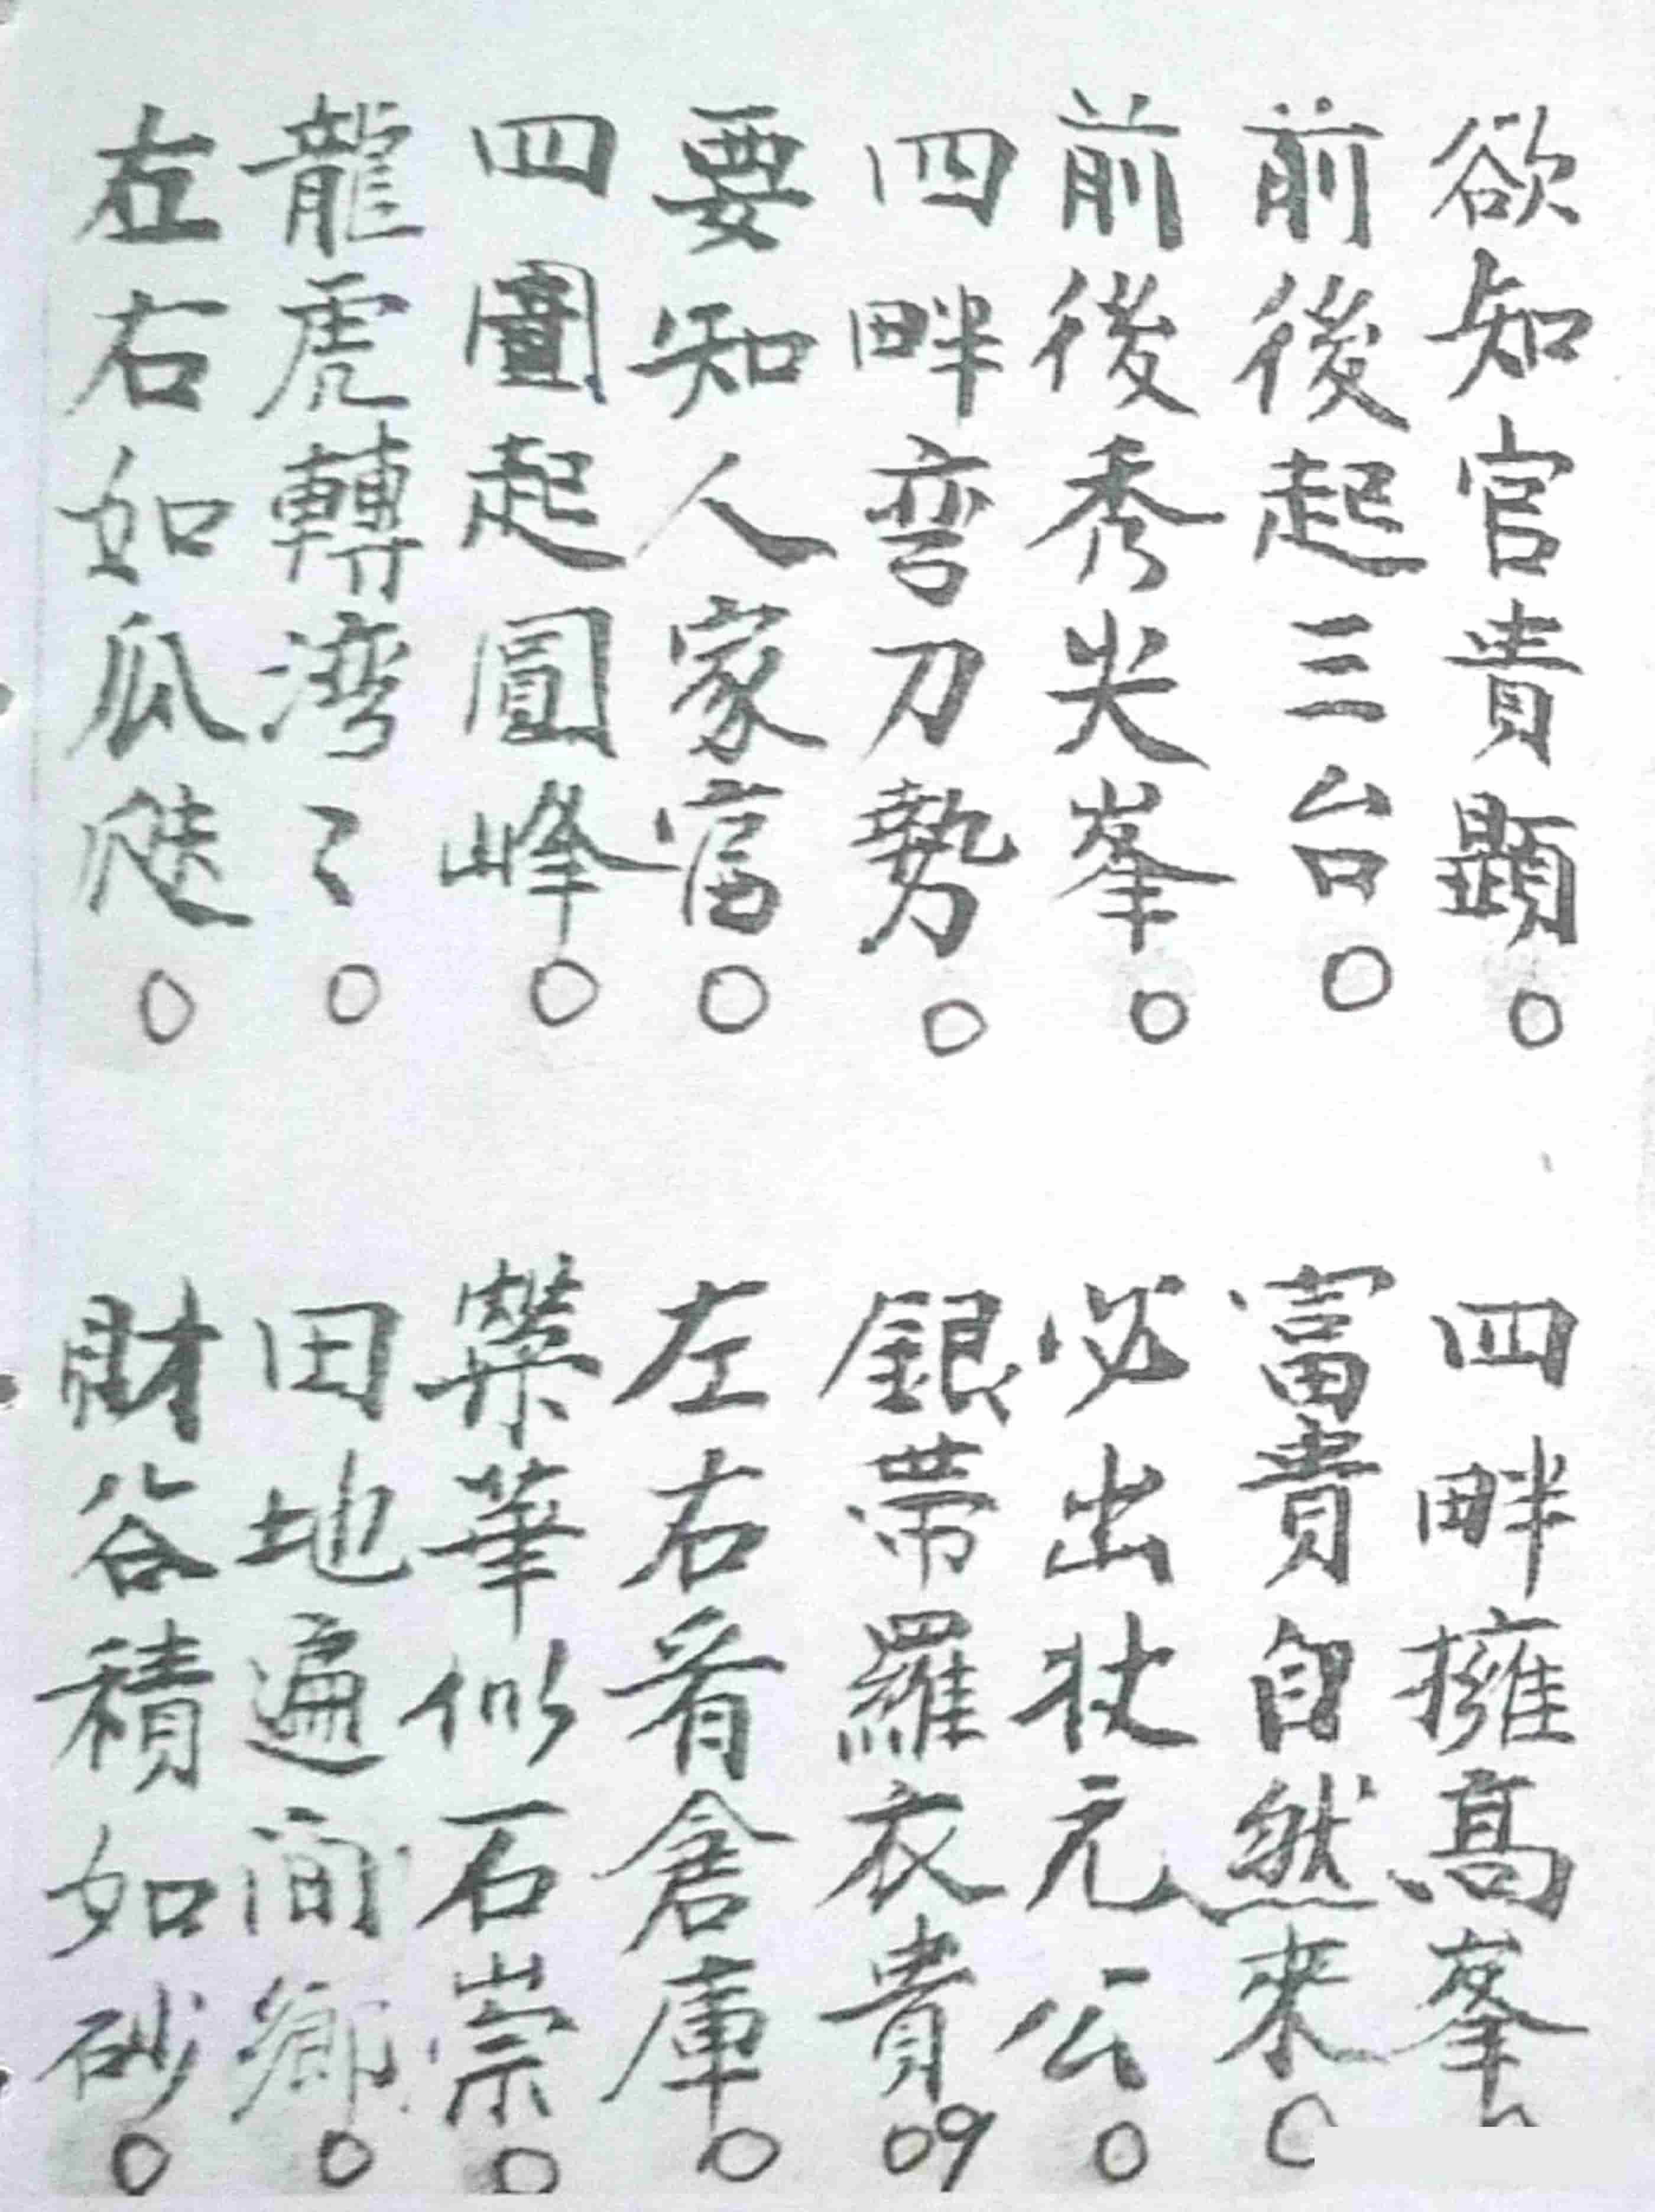 欲知官貴顯○
四畔擁高峯○
前後起三台○
富貴自然來○
前後秀尖峯○
必出状元公○
四畔弯刀勢○
銀帯羅衣貴○9
要知人家富○
左右看倉庫○
四圍起圓峰○
榮華似石崇○
龍虎轉湾々○
田地遍間鄉○
左右如瓜瓞○
財谷積如砂○